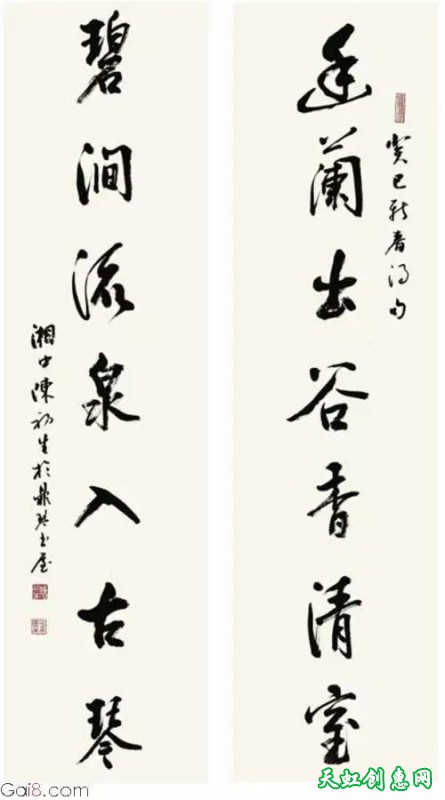 癸巳新春得句
幽蘭出谷香清室
碧澗流泉入古琴
湘中陳初生於
天虹创惠网
Gai8.com